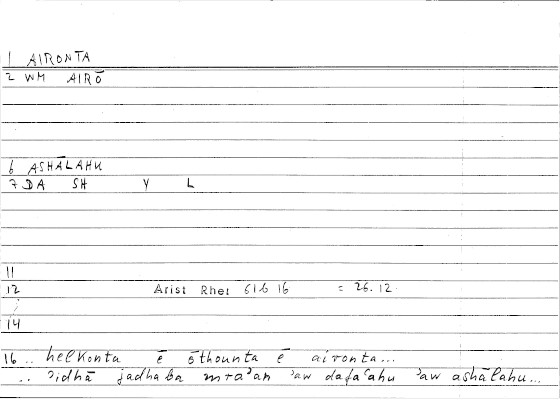 1 AIRONTA
2 WM AIRŌ
6 ASHĀLAHU
7 DA SH Y L
11
12 Arist Rhet 61b 16 = 26.12.
14
16 .. helkonta ē ōthounta ē aironta...
.. ʾidhā jadhaba mraʾan ʾaw dafaʿahu ʾaw ashālahu...